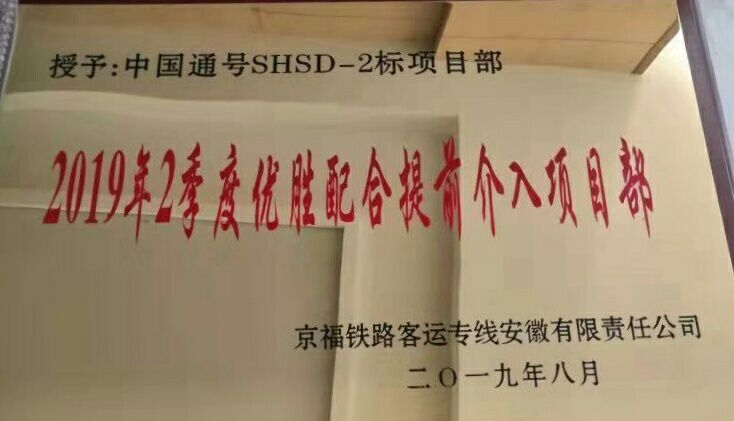 授予:中国通号SHSD-2标项目部
2019年2季度优胜配合提前介入项目部
京福铁路客运专线安徽有限责任公司
二〇一九年八月